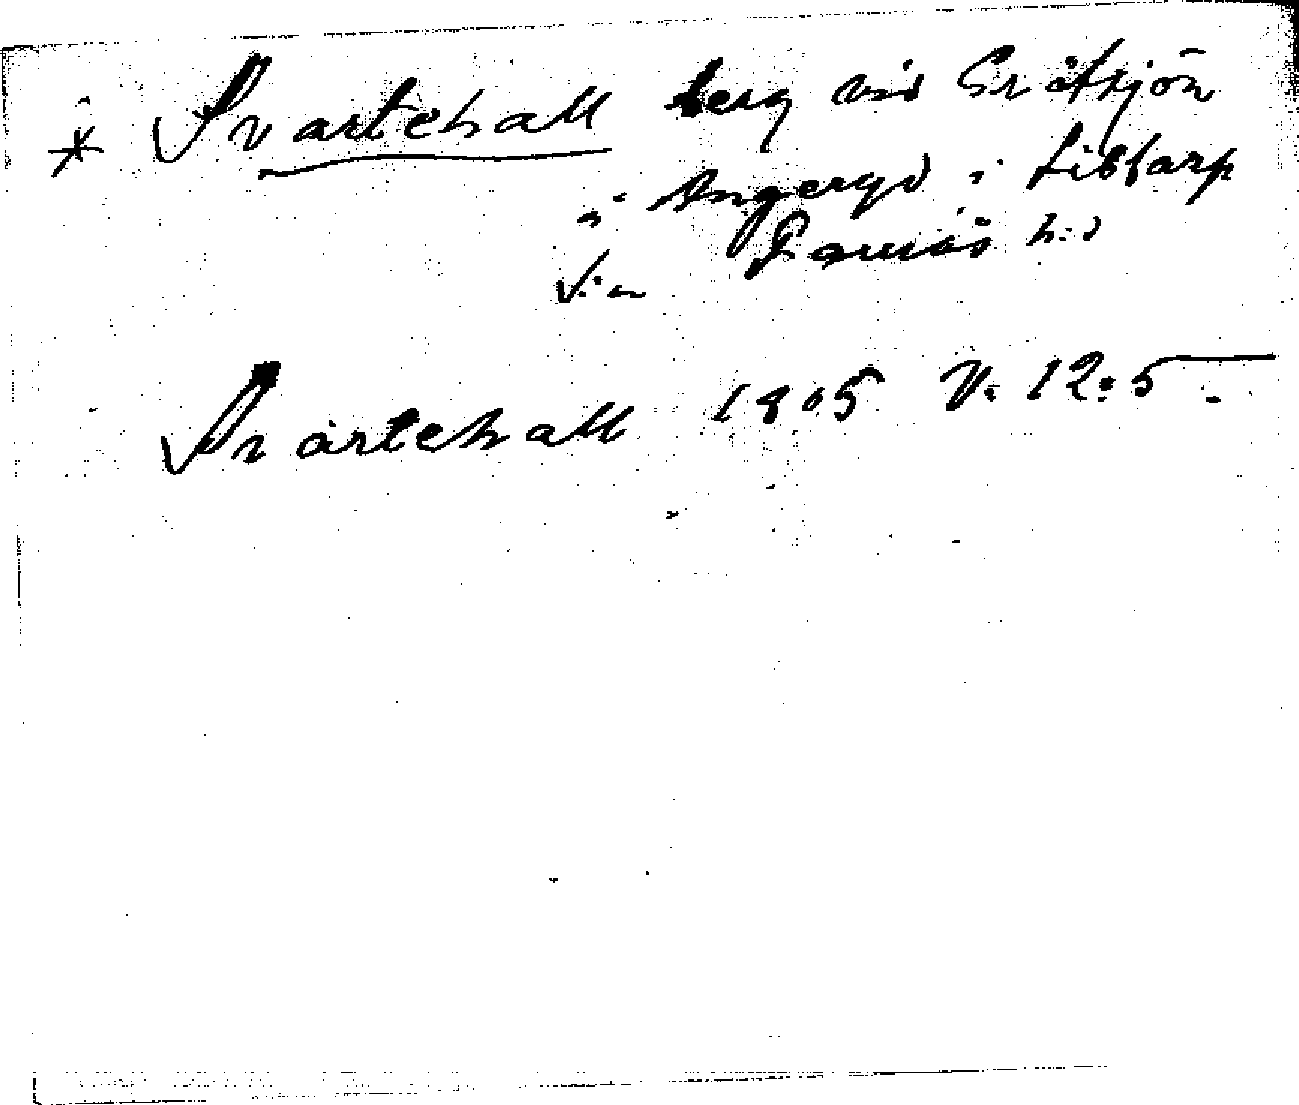 * Svartehall berg vid Gråsjön
i Angeryd i Libbarp
V:a Ramsås h:d
Svartehall 1805 V. 12:5